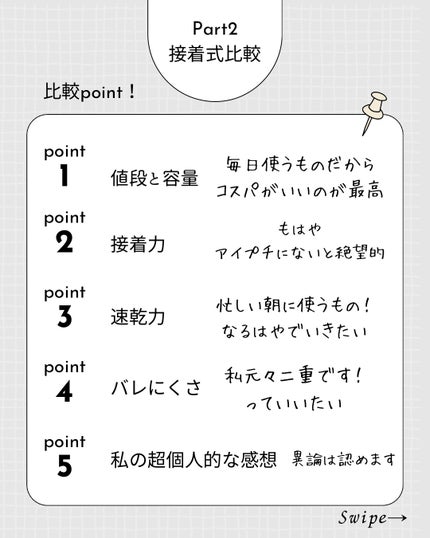 Part2
接着式比較
比較point！
point
1
値段と容量
毎日使うものだから
コスパがいいのが最高
point
2
接着力
もはや
アイプチにないと絶望的
point
3
速乾力
忙しい朝に使うもの！
なるはやでいきたい
point
4
バレにくさ
私元々二重です！
っていいたい
point
5
私の超個人的な感想
異論は認めます
Swipe→